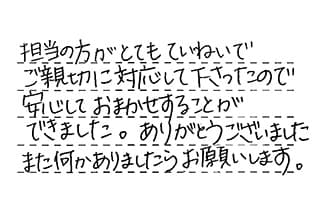 担当の方がとてもていねいで
ご親切に対応して下さったので
安心しておまかせすることが
できました。ありがとうございました
また何かありましたらお願いします。